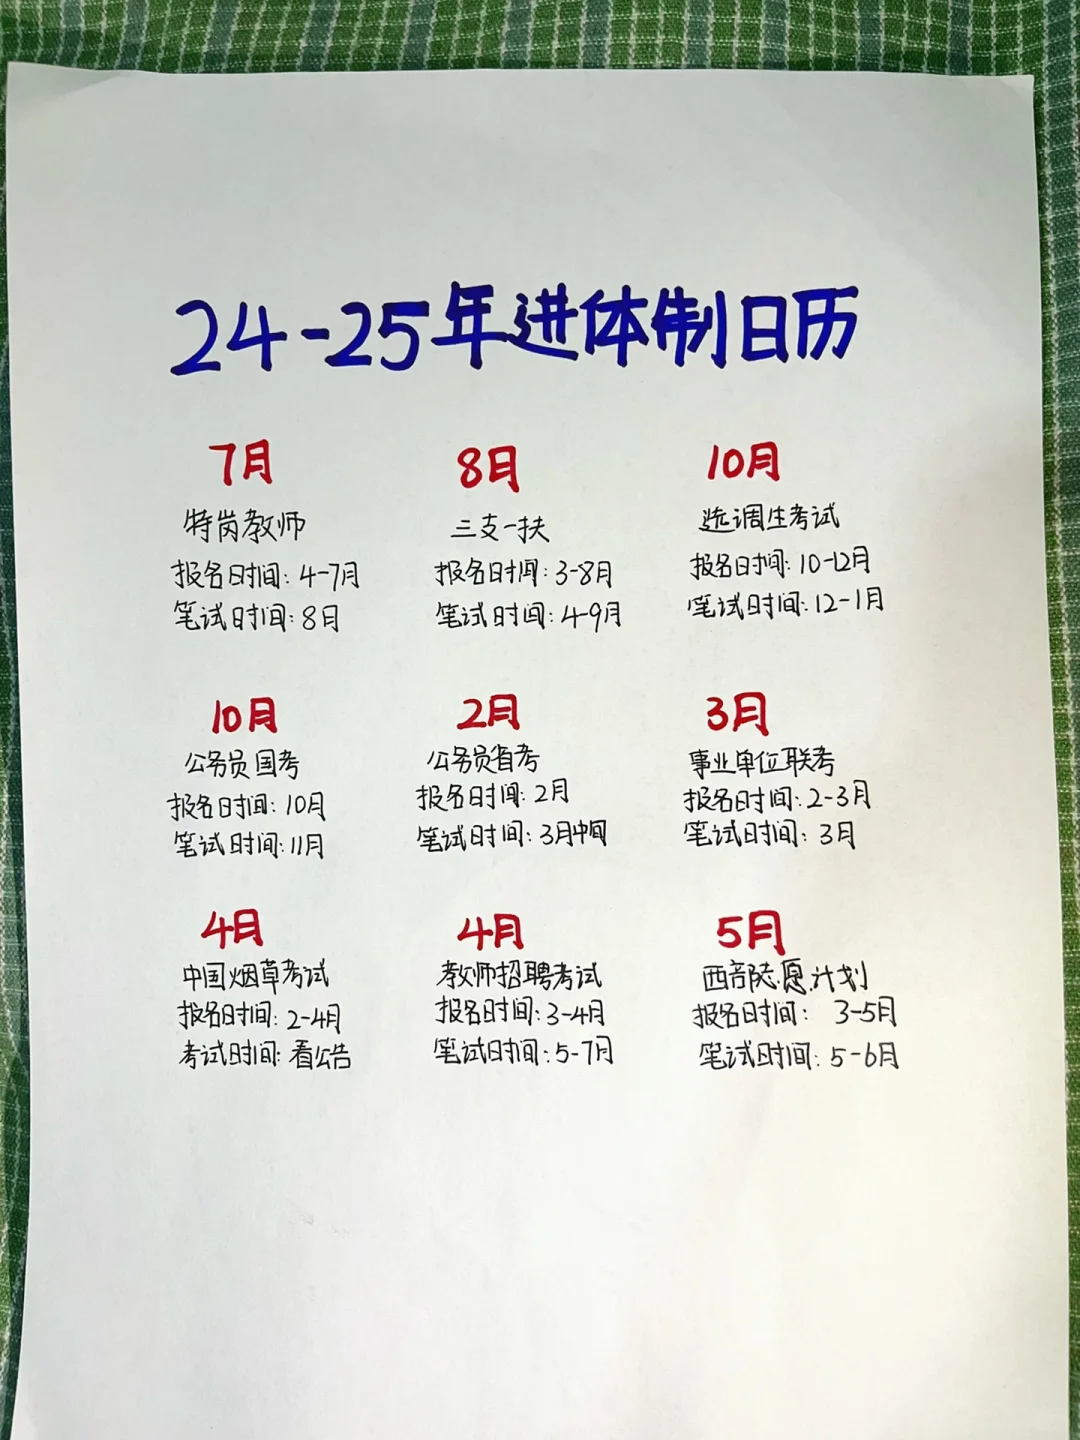 24-25年进体制日历
7月
特岗教师
报名时间: 4-7月
笔试时间: 8月
8月
三支一扶
报名时间: 3-8月
笔试时间: 4-9月
10月
选调生考试
报名时间: 10-12月
笔试时间: 12-1月
10月
公务员国考
报名时间: 10月
笔试时间: 11月
2月
公务员省考
报名时间: 2月
笔试时间: 3月中旬
3月
事业单位联考
报名时间: 2-3月
笔试时间: 3月
4月
中国烟草考试
报名时间: 2-4月
考试时间: 看公告
4月
教师招聘考试
报名时间: 3-4月
笔试时间: 5-7月
5月
西部志愿计划
报名时间: 3-5月
笔试时间: 5-6月